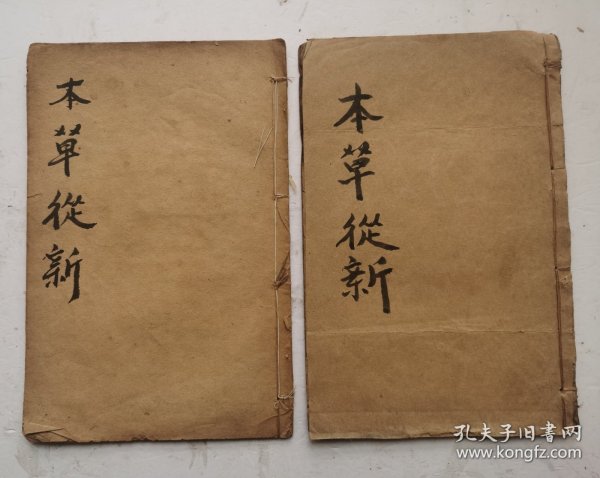 本草從新
本草從新
孔夫子旧書网
www.kongfz.com